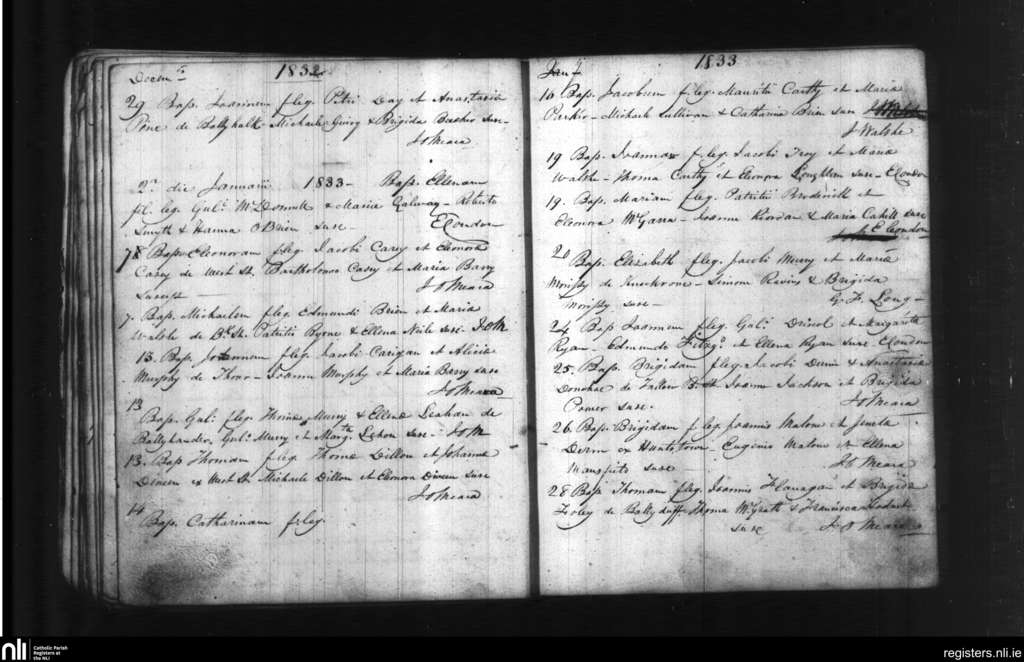 Decem
1832
29 Bap. Joannem f. leg. Petri Day et Anastasia
de Ballyhalk - Michaele & Brigida susc -
J O Meara
2a die Januarii 1833 - Bap. Ellenam
fil. leg. Gul. McDonnell & Maria Galway - Roberto
Smyth & Hanna O'Brien susc -
E Condon
7 Bap. Eleonoram f leg Jacobi Casey et Eleonora
Casey de West St. Bartholomeo Casey et Maria Barry
J O Meara
suscept
7. Bap. Michaelem f leg Edmundi Brien et Maria
Walsh de St. Patritii Byrne & Ellena susc - J O M
13. Bap. Joannem f leg Jacobi Carigan et Alicia
Murphy de - Joanne Murphy et Maria Barry susc
J O Meara
13
Bap. Gul. f. leg. Thomæ Murry & Ellenæ Leahan de
Ballylander, Gul. Murry et Marg. susc - J O M
13. Bap Thomam f leg Thomæ Dillon et Johanna
Dineen ex West St. Michaele Dillon et Eleonora Dineen susc
J O Meara
14
Bap. Catharinam f. leg.
1833
Jany
16 Bap. Jacobum f leg. Mauritii Carthy et Maria
Parker - Michaele Sullivan & Catharina Brien susc
J Walshe
19 Bap. Joanna f. leg. Jacobi Troy et Maria
Walsh - Thoma Carthy et Eleonora Loughlin susc - E Condon
19. Bap. Mariam f leg. Patritii Broderick et
Eleonora McGarra - Joanne Riordan & Maria Cahill susc
E Condon
20 Bap. Elizabeth f leg. Jacobi Murry et Maria
Morissy de Knockrone - Simone & Brigida
Morissy susc -
G. F. Long -
24 Bap Joannem f leg. Gul. Driscol et Margarita
Ryan - Edmundo Fitzg. et Ellena Ryan susc - E Condon
25. Bap. Brigidam f leg. Jacobi & Anastasia
Donohoe de et Joanne Jackson et Brigida
Power susc.
J O Meara
26. Bap. Brigidam f leg. Joannis Malone et
ex Huntstown - Eugenio Malone et Ellena
susc
J O Meara
28 Bap. Thomam f leg. Joannis Flanagan et Brigida
Foley de Ballyduff Thoma McGrath & Francisca
susc
J O Meara
nli
Catholic Parish
Registers at
the NLI
registers.nli.ie